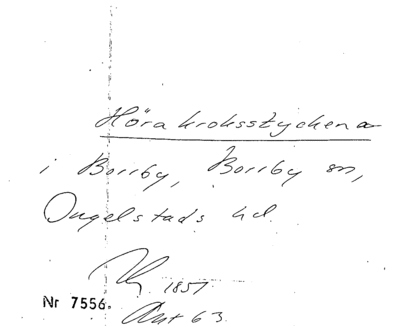 Höra kroksstycken
i Borrby, Borrby sn,
Ingelstads hd.
1857
Nr 7556.
Akt 63.